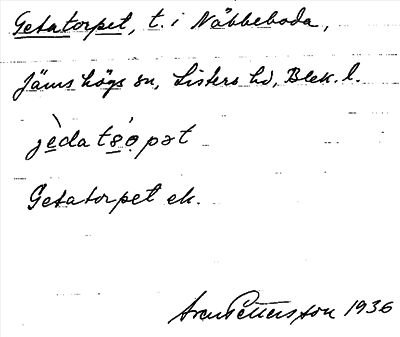 Getatorpet, t. i Näbbeboda,
Jämshögs sn, Listers hd, Blek. l.
jèdatšópət
Getatorpet ek.
Sven Pettersson 1936